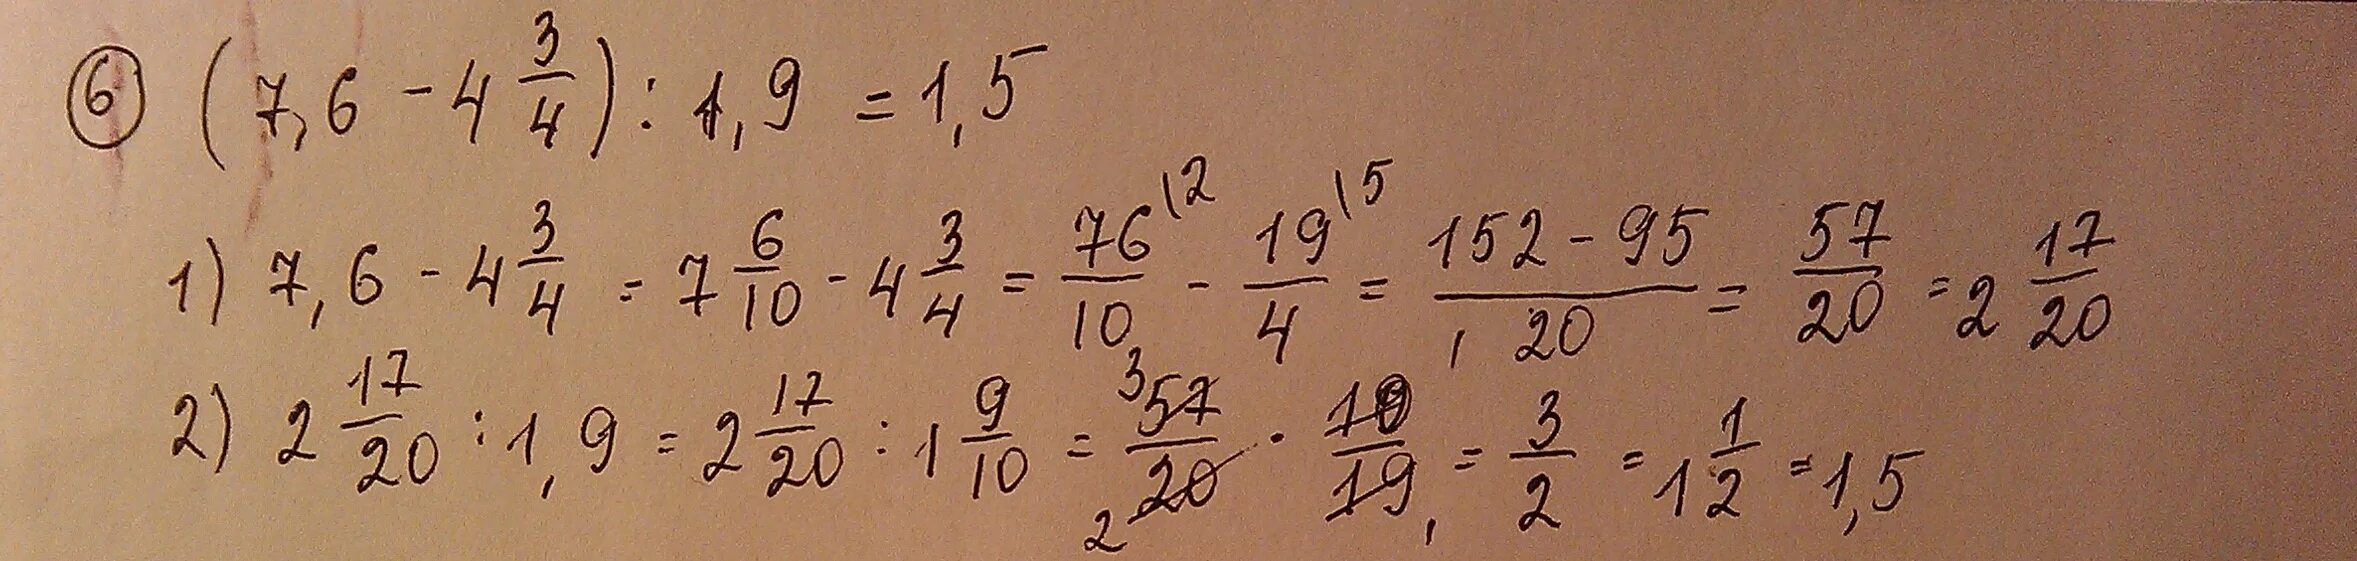 ⑥ (7,6 - 4 3/4) : 1,9 = 1,5
1) 7,6 - 4 3/4 = 7 6/10 - 4 3/4 = 76\2/10 - 19\5/4 = 152 - 95/20 = 57/20 = 2 17/20
2) 2 17/20 : 1,9 = 2 17/20 : 1 9/10 = 3 57/20 2 · 10/19 1 = 3/2 = 1 1/2 = 1,5